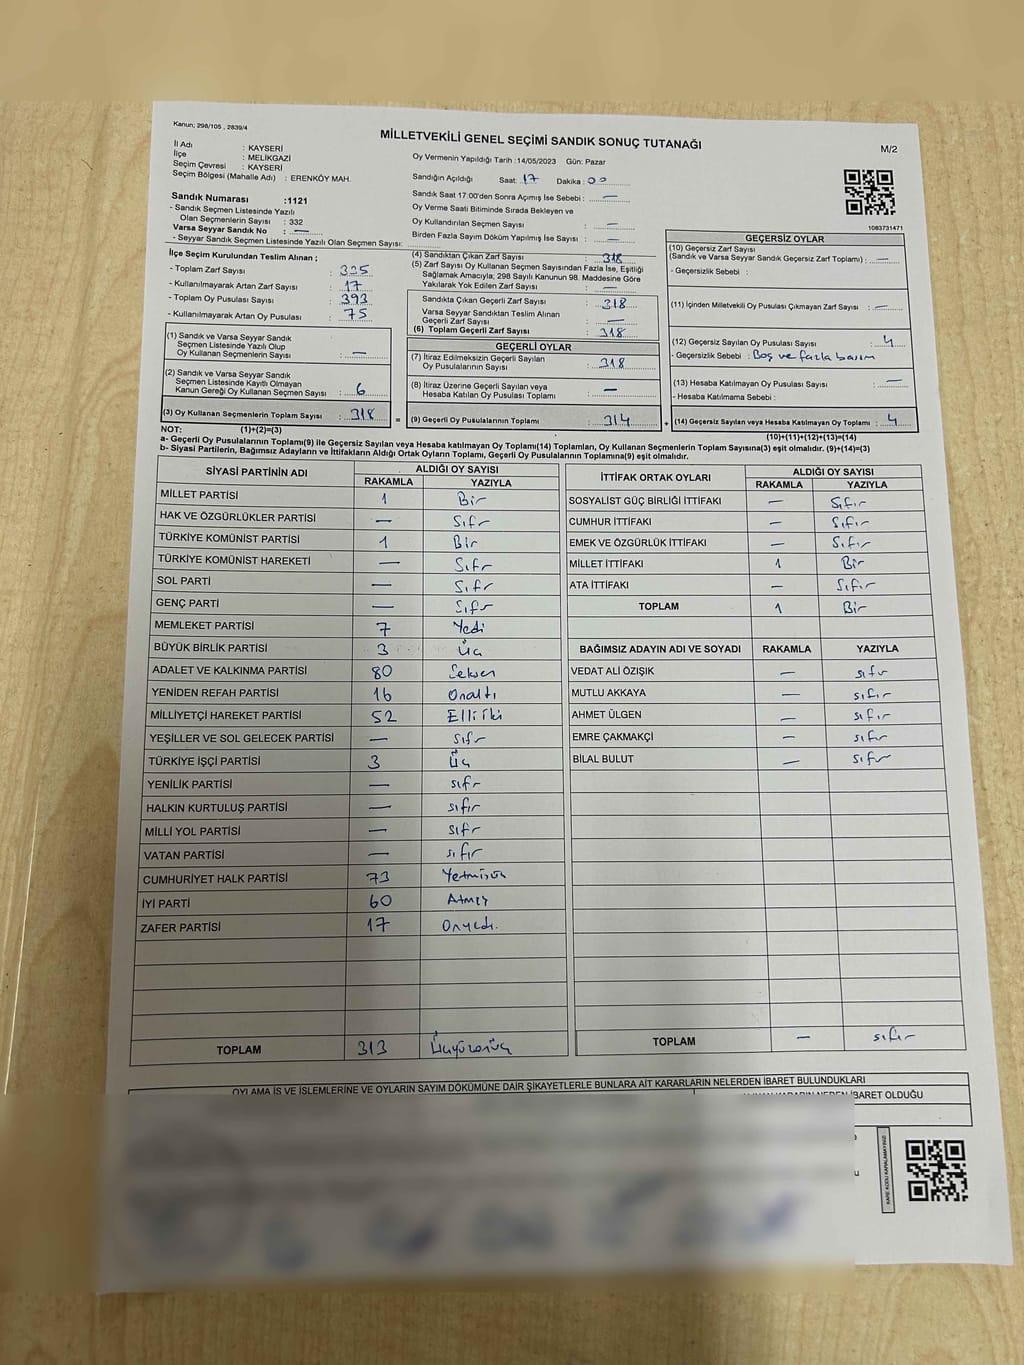 Kanun; 298/105 , 2839/4
MİLLETVEKİLİ GENEL SEÇİMİ SANDIK SONUÇ TUTANAĞI
M/2
İl Adı : KAYSERİ
İlçe : MELİKGAZİ
Seçim Çevresi : KAYSERİ
Seçim Bölgesi (Mahalle Adı) : ERENKÖY MAH.
Sandık Numarası :1121
- Sandık Seçmen Listesinde Yazılı
Olan Seçmenlerin Sayısı : 332
Varsa Seyyar Sandık No : —
- Seyyar Sandık Seçmen Listesinde Yazılı Olan Seçmen Sayısı:
Oy Vermenin Yapıldığı Tarih :14/05/2023 Gün: Pazar
Sandığın Açıldığı Saat: 17 Dakika : 00
Sandık Saat 17:00'den Sonra Açımış İse Sebebi : —
Oy Verme Saati Bitiminde Sırada Bekleyen ve
Oy Kullandırılan Seçmen Sayısı : —
Birden Fazla Sayım Döküm Yapılmış İse Sayısı : —
1083731471
İlçe Seçim Kurulundan Teslim Alınan ;
- Toplam Zarf Sayısı : 335
- Kullanılmayarak Artan Zarf Sayısı : 17
- Toplam Oy Pusulası Sayısı : 393
- Kullanılmayarak Artan Oy Pusulası : 75
(1) Sandık ve Varsa Seyyar Sandık
Seçmen Listesinde Yazılı Olup
Oy Kullanan Seçmenlerin Sayısı : —
(2) Sandık ve Varsa Seyyar Sandık
Seçmen Listesinde Kayıtlı Olmayan
Kanun Gereği Oy Kullanan Seçmen Sayısı : 6
(3) Oy Kullanan Seçmenlerin Toplam Sayısı : 318 =
(4) Sandıktan Çıkan Zarf Sayısı : 318
(5) Zarf Sayısı Oy Kullanan Seçmen Sayısından Fazla İse, Eşitliği
Sağlamak Amacıyla; 298 Sayılı Kanunun 98. Maddesine Göre
Yakılarak Yok Edilen Zarf Sayısı : —
Sandıkta Çıkan Geçerli Zarf Sayısı : 318
Varsa Seyyar Sandıktan Teslim Alınan
Geçerli Zarf Sayısı : —
(6) Toplam Geçerli Zarf Sayısı : 318
GEÇERLİ OYLAR
(7) İtiraz Edilmeksizin Geçerli Sayılan
Oy Pusulasının Sayısı : 318
(8) İtiraz Üzerine Geçerli Sayılan veya
Hesaba Katılan Oy Pusulası Toplamı : —
(9) Geçerli Oy Pusulalarının Toplamı : 314 +
GEÇERSİZ OYLAR
(10) Geçersiz Zarf Sayısı
(Sandık ve Varsa Seyyar Sandık Geçersiz Zarf Toplamı) : —
- Geçersizlik Sebebi :
(11) İçinden Milletvekili Oy Pusulası Çıkmayan Zarf Sayısı : —
(12) Geçersiz Sayılan Oy Pusulası Sayısı : 4
- Geçersizlik Sebebi : Boş ve fazla basım
(13) Hesaba Katılmayan Oy Pusulası Sayısı : —
- Hesaba Katılmama Sebebi :
(14) Geçersiz Sayılan veya Hesaba Katılmayan Oy Toplamı : 4
NOT: (1)+(2)=(3) (10)+(11)+(12)+(13)=(14)
a- Geçerli Oy Pusulalarının Toplamı(9) ile Geçersiz Sayılan veya Hesaba katılmayan Oy Toplamı(14) Toplamları, Oy Kullanan Seçmenlerin Toplam Sayısına(3) eşit olmalıdır. (9)+(14)=(3)
b- Siyasi Partilerin, Bağımsız Adayların ve İttifakların Aldığı Ortak Oyların Toplamı, Geçerli Oy Pusulalarının Toplamına(9) eşit olmalıdır.
SİYASİ PARTİNİN ADI ALDIĞI OY SAYISI
RAKAMLA YAZIYLA
MİLLET PARTİSİ 1 Bir
HAK VE ÖZGÜRLÜKLER PARTİSİ — Sıfır
TÜRKİYE KOMÜNİST PARTİSİ 1 Bir
TÜRKİYE KOMÜNİST HAREKETİ — Sıfır
SOL PARTİ — Sıfır
GENÇ PARTİ — Sıfır
MEMLEKET PARTİSİ 7 Yedi
BÜYÜK BİRLİK PARTİSİ 3 Üç
ADALET VE KALKINMA PARTİSİ 80 Seksen
YENİDEN REFAH PARTİSİ 16 Onaltı
MİLLİYETÇİ HAREKET PARTİSİ 52 Elliiki
YEŞİLLER VE SOL GELECEK PARTİSİ — sıfır
TÜRKİYE İŞÇİ PARTİSİ 3 Üç
YENİLİK PARTİSİ — sıfır
HALKIN KURTULUŞ PARTİSİ — sıfır
MİLLİ YOL PARTİSİ — sıfır
VATAN PARTİSİ — sıfır
CUMHURİYET HALK PARTİSİ 73 Yetmişüç
İYİ PARTİ 60 Atmış
ZAFER PARTİSİ 17 Onyedi.
TOPLAM 313 Üçyüzonüç
İTTİFAK ORTAK OYLARI ALDIĞI OY SAYISI
RAKAMLA YAZIYLA
SOSYALİST GÜÇ BİRLİĞİ İTTİFAKI — Sıfır
CUMHUR İTTİFAKI — Sıfır
EMEK VE ÖZGÜRLÜK İTTİFAKI — Sıfır
MİLLET İTTİFAKI 1 Bir
ATA İTTİFAKI — Sıfır
TOPLAM 1 Bir
BAĞIMSIZ ADAYIN ADI VE SOYADI RAKAMLA YAZIYLA
VEDAT ALİ ÖZIŞIK — sıfır
MUTLU AKKAYA — sıfır
AHMET ÜLGEN — sıfır
EMRE ÇAKMAKÇİ — sıfır
BİLAL BULUT — sıfır
TOPLAM — sıfır
OYLAMA İŞ VE İŞLEMLERİNE VE OYLARIN SAYIM DÖKÜMÜNE DAİR ŞİKAYETLERLE BUNLARA AİT KARARLARIN NELERDEN İBARET BULUNDUKLARI
İBARET OLDUĞU
KARE KODU KARALAMAYINIZ!